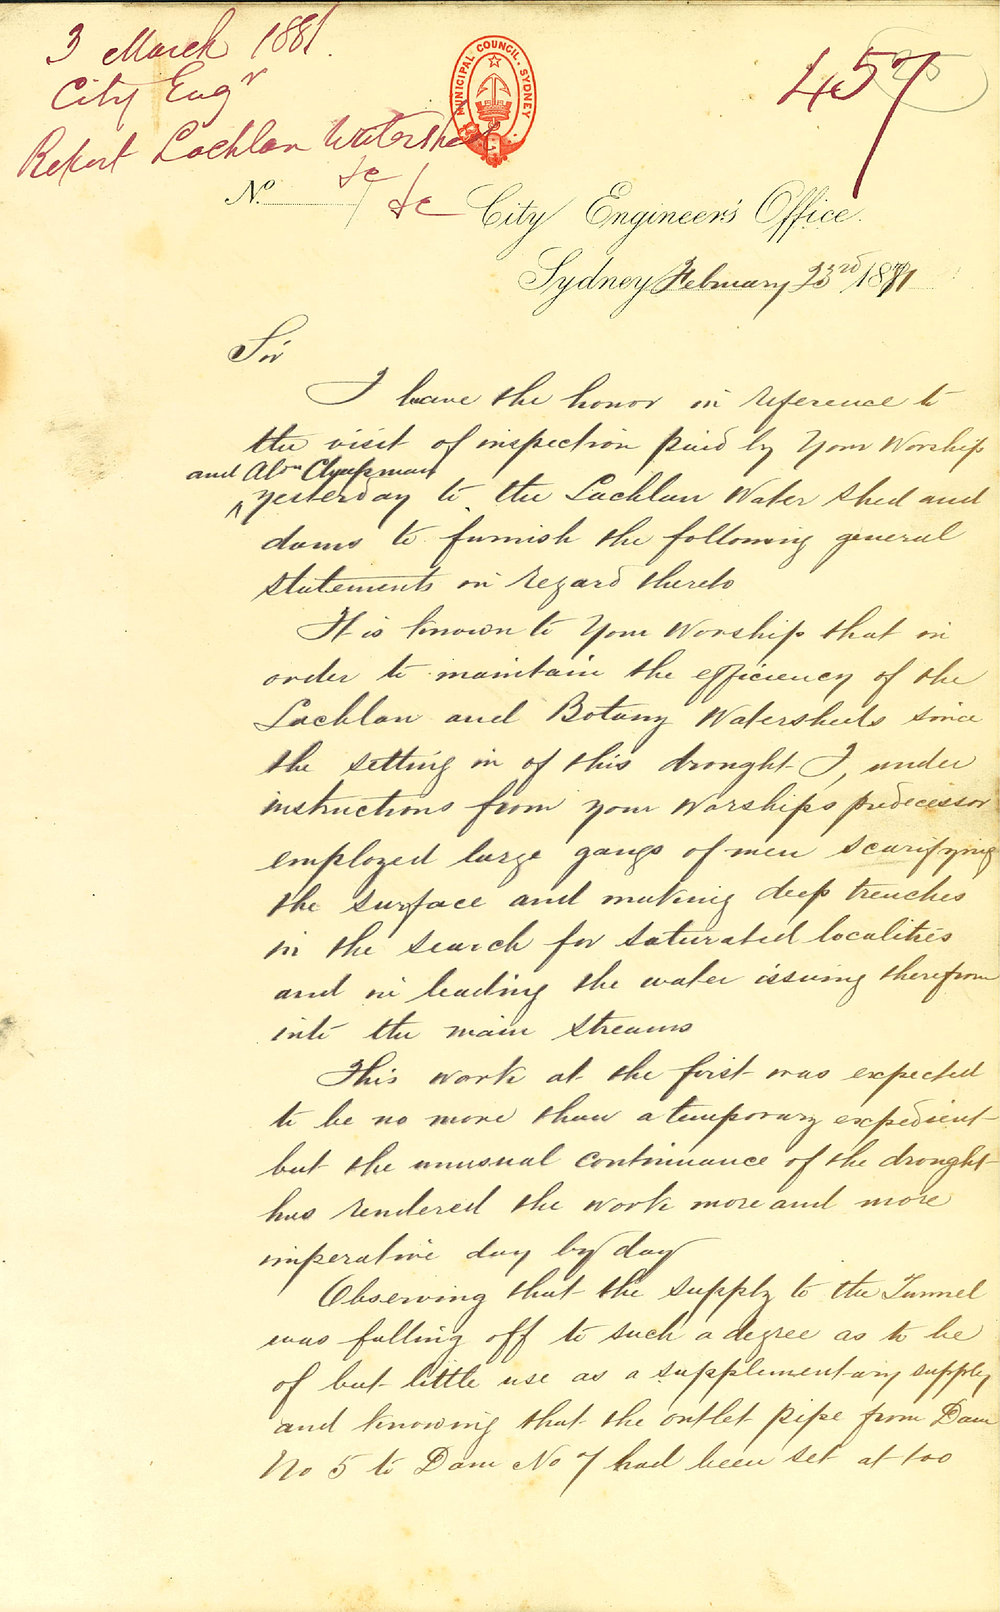 3 March 1881.
City Engr
Report Lachlan Watershed
&c &c
457
MUNICIPAL COUNCIL. SYDNEY
No.
City Engineer's Office.
Sydney February 23rd 1881
Sir
I have the honor in reference to
the visit of inspection paid by Your Worship
and Aldn Chapman
yesterday to the Lachlan Water shed and
dams to furnish the following general
statements in regard thereto
It is known to Your Worship that in
order to maintain the efficiency of the
Lachlan and Botany Watersheds since
the setting in of this drought I, under
instructions from your Worships predecessor
employed large gangs of men scarifying
the surface and making deep trenches
in the search for saturated localities
and in leading the water issuing therefrom
into the main streams
This work at the first was expected
to be no more than a temporary expedient
but the unusual continuance of the drought
has rendered the work more and more
imperative day by day
Observing that the supply to the Tunnel
was falling off to such a degree as to be
of but little use as a supplementary supply
and knowing that the outlet pipe from Dam
No 5 to Dam No 7 had been set at too